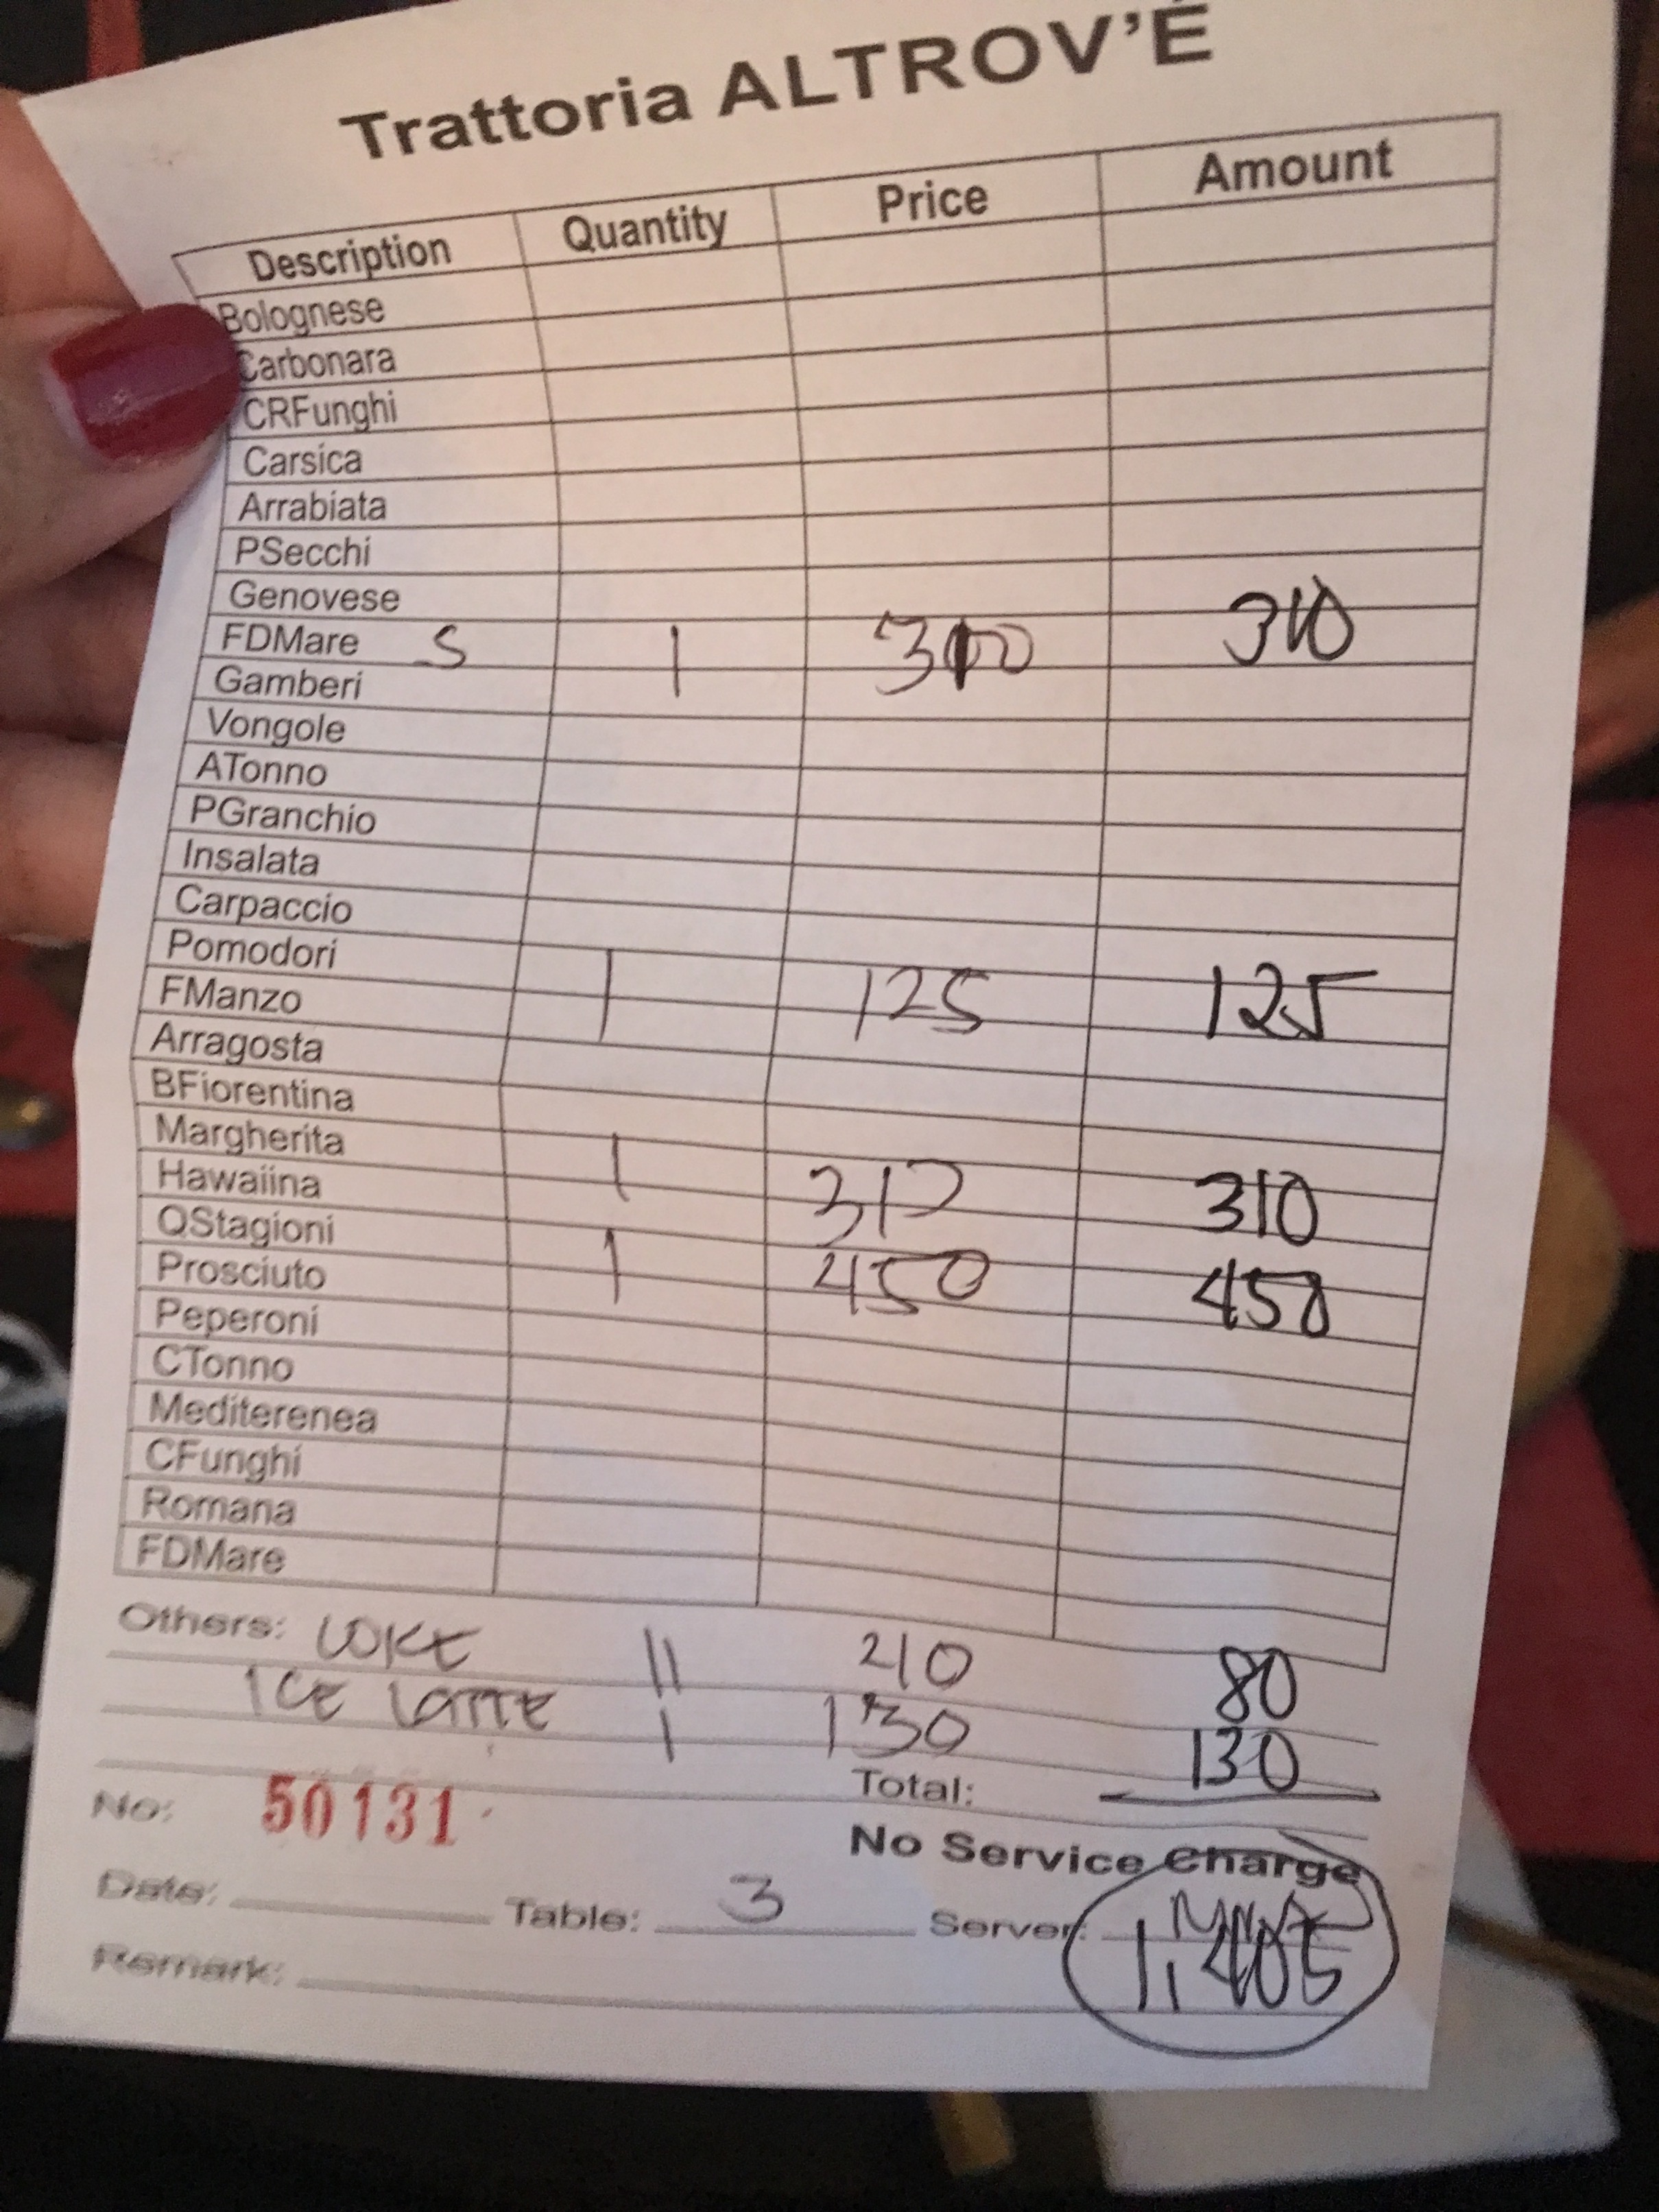 Trattoria ALTROV'É
Description Quantity Price Amount
Bolognese
Carbonara
CRFunghi
Carsica
Arrabiata
PSecchi
Genovese
FDMare S 1 310 310
Gamberi
Vongole
ATonno
PGranchio
Insalata
Carpaccio
Pomodori 1 125 125
FManzo
Arragosta
BFiorentina
Margherita 1 310 310
Hawaiina
QStagioni 1 450 450
Prosciuto
Peperoni
CTonno
Mediterenea
CFunghi
Romana
FDMare
Others: COKE 11 40 80
ICE LATTE 1 130 130
Total:
No: 50131
No Service Charge
Date: Table: 3 Server:
1,405
Remark: